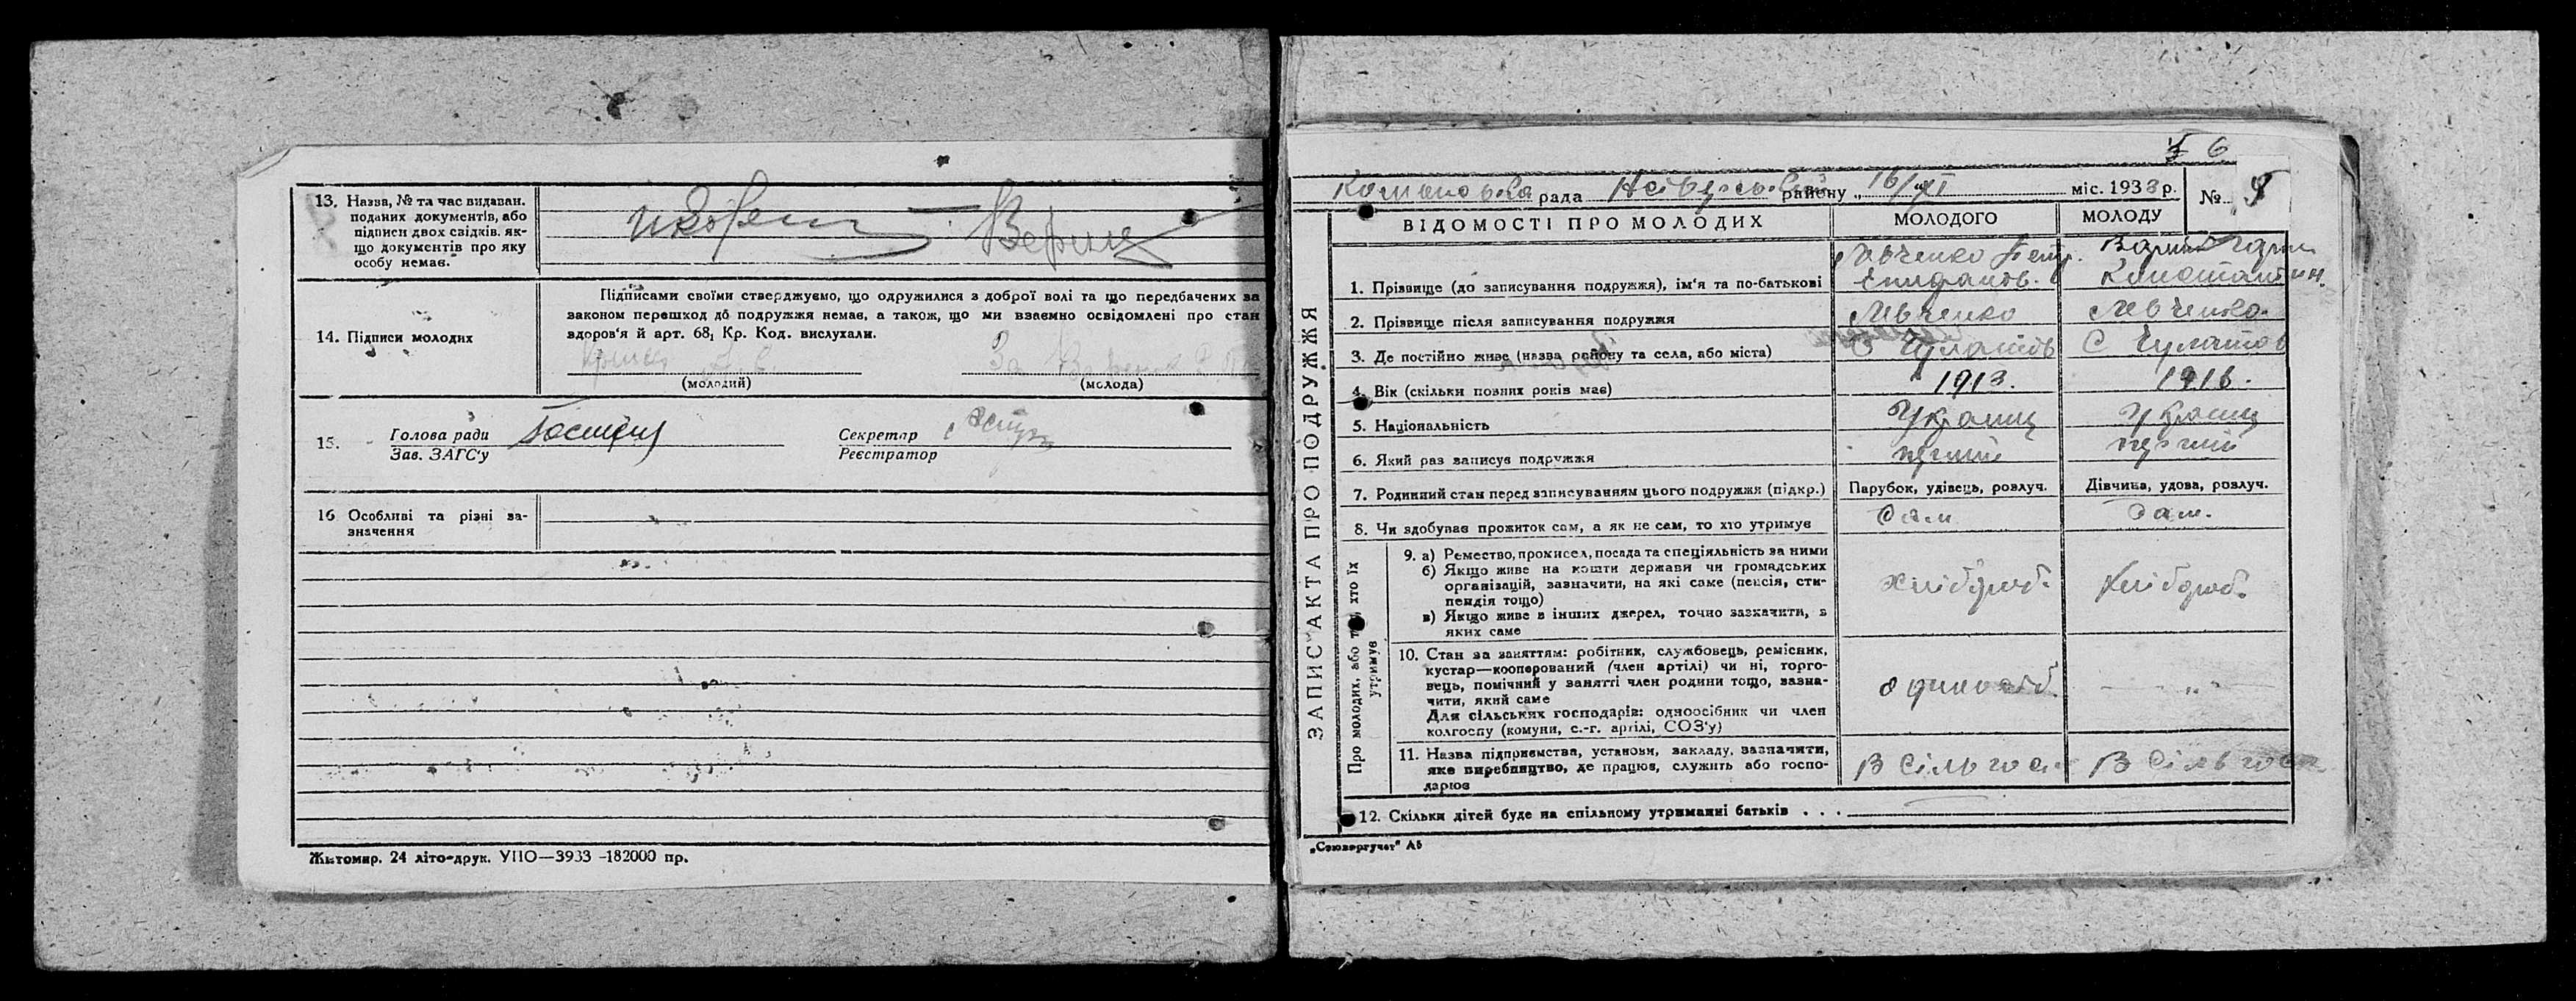 13. Назва, № та час видаван.
поданих документів, або
підписи двох свідків, як-
що документів про яку
особу немає.
14. Підписи молодих
Підписами своїми стверджуємо, що одружилися з доброї волі та що передбачених за
законом перешкод до подружжя немає, а також, що ми взаємно освідомлені про стан
здоров'я й арт. 68, Кр. Код. вислухали.
За
(молодий) (молода)
15. Голова ради Секретар
Зав. ЗАГС'у Реєстратор
16 Особливі та різні за-
значення
Житомир. 24 літо-друк. УПО—3933 -182000 пр.
6
рада району „ 16/XI міс. 1933 р. №
ЗАПИС АКТА ПРО ПОДРУЖЖЯ
ВІДОМОСТІ ПРО МОЛОДИХ МОЛОДОГО МОЛОДУ
Левченко Петр.
1. Прізвище (до записування подружжя), ім'я та по-батькові Епифанов. Константин.
2. Прізвище після записування подружжя Левченко Левченко
3. Де постійно живе (назва району та села, або міста) С Чулатов С Чулатов
4. Вік (скільки повних років має) 1913. 1916.
5. Національність Украинц Украинц
6. Який раз записує подружжя перший перший
7. Родинний стан перед записуванням цього подружжя (підкр.) Парубок, удівець, розлуч. Дівчина, удова, розлуч.
8. Чи здобував прожиток сам, а як не сам, то хто утримує Сам Сам.
Про молодих, або хто їх
утримує
9. а) Ремество, промисел, посада та спеціяльність за ними
б) Якщо живе на кошти держави чи громадських
організацій, зазначити, на які саме (пенсія, сти-
пендія тощо)
в) Якщо живе в інших джерел, точно зазначити, в
яких саме
Хлібороб. Хлібороб.
10. Стан за заняттям: робітник, службовець, ремісник,
кустар—кооперований (член артілі) чи ні, торго-
вець, помічний у занятті член родини тощо, зазна-
чити, який саме
Для сільських господарів: одноосібник чи член
колгоспу (комуни, с.-г. артілі, СОЗ'у)
одноосіб. — „ —
11. Назва підприємства, установи, закладу, зазначити,
яке виробництво, де працює, служить або госпо-
дарює
В Сільгосп В Сільгосп
12. Скільки дітей буде на спільному утриманні батьків . . . —
„Союзоргучет" А5